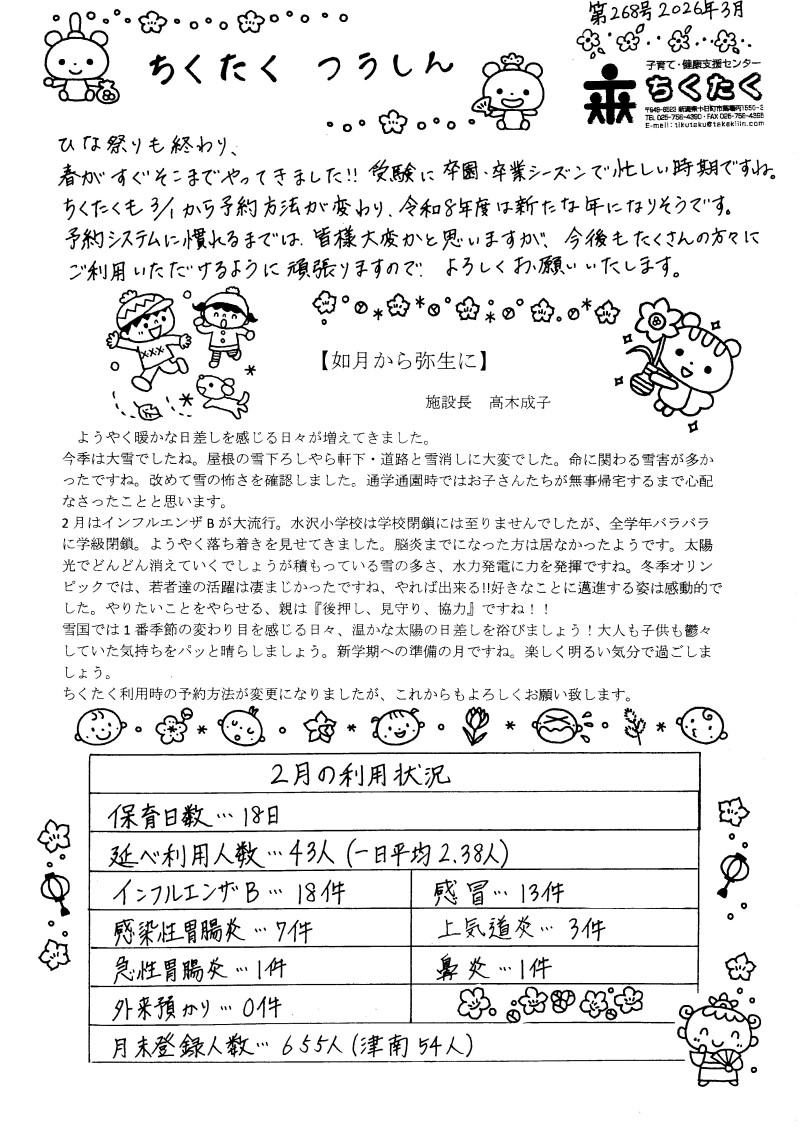 第268号 2026年3月
ちくたく つうしん
子育て・健康支援センター
ちくたく
〒949-8522 新潟県十日町市馬場丙1550-2
TEL 025-756-4390・FAX 025-756-4395
E-mail:tikutaku@takakiiin.com
ひな祭りも終わり、
春がすぐそこまでやってきました!! 受験に卒園・卒業シーズンで忙しい時期ですね。
ちくたくも3/1から予約方法が変わり、令和8年度は新たな年になりそうです。
予約システムに慣れるまでは、皆様大変かと思いますが、今後もたくさんの方々に
ご利用いただけるように頑張りますので、よろしくお願いいたします。
【如月から弥生に】
施設長 高木成子
ようやく暖かな日差しを感じる日々が増えてきました。
今季は大雪でしたね。屋根の雪下ろしやら軒下・道路と雪消しに大変でした。命に関わる雪害が多か
ったですね。改めて雪の怖さを確認しました。通学通園時ではお子さんたちが無事帰宅するまで心配
なさったことと思います。
2月はインフルエンザBが大流行。水沢小学校は学校閉鎖には至りませんでしたが、全学年バラバラ
に学級閉鎖。ようやく落ち着きを見せてきました。脳炎までになった方は居なかったようです。太陽
光でどんどん消えていくでしょうが積もっている雪の多さ、水力発電に力を発揮ですね。冬季オリン
ピックでは、若者達の活躍は凄まじかったですね、やれば出来る!!好きなことに邁進する姿は感動的で
した。やりたいことをやらせる、親は『後押し、見守り、協力』ですね！！
雪国では1番季節の変わり目を感じる日々、温かな太陽の日差しを浴びましょう！大人も子供も鬱々
していた気持ちをパッと晴らしましょう。新学期への準備の月ですね。楽しく明るい気分で過ごしま
しょう。
ちくたく利用時の予約方法が変更になりましたが、これからもよろしくお願い致します。
2月の利用状況
保育日数…18日
延べ利用人数…43人(一日平均2.38人)
インフルエンザB…18件
感冒…13件
感染性胃腸炎…7件
上気道炎…3件
急性胃腸炎…1件
鼻炎…1件
外来預かり…0件
月末登録人数…655人(津南54人)